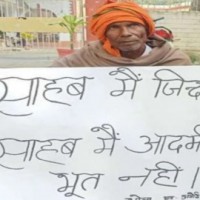 साहब मैं जिंद
साहब मैं आदमी
भूत नहीं।